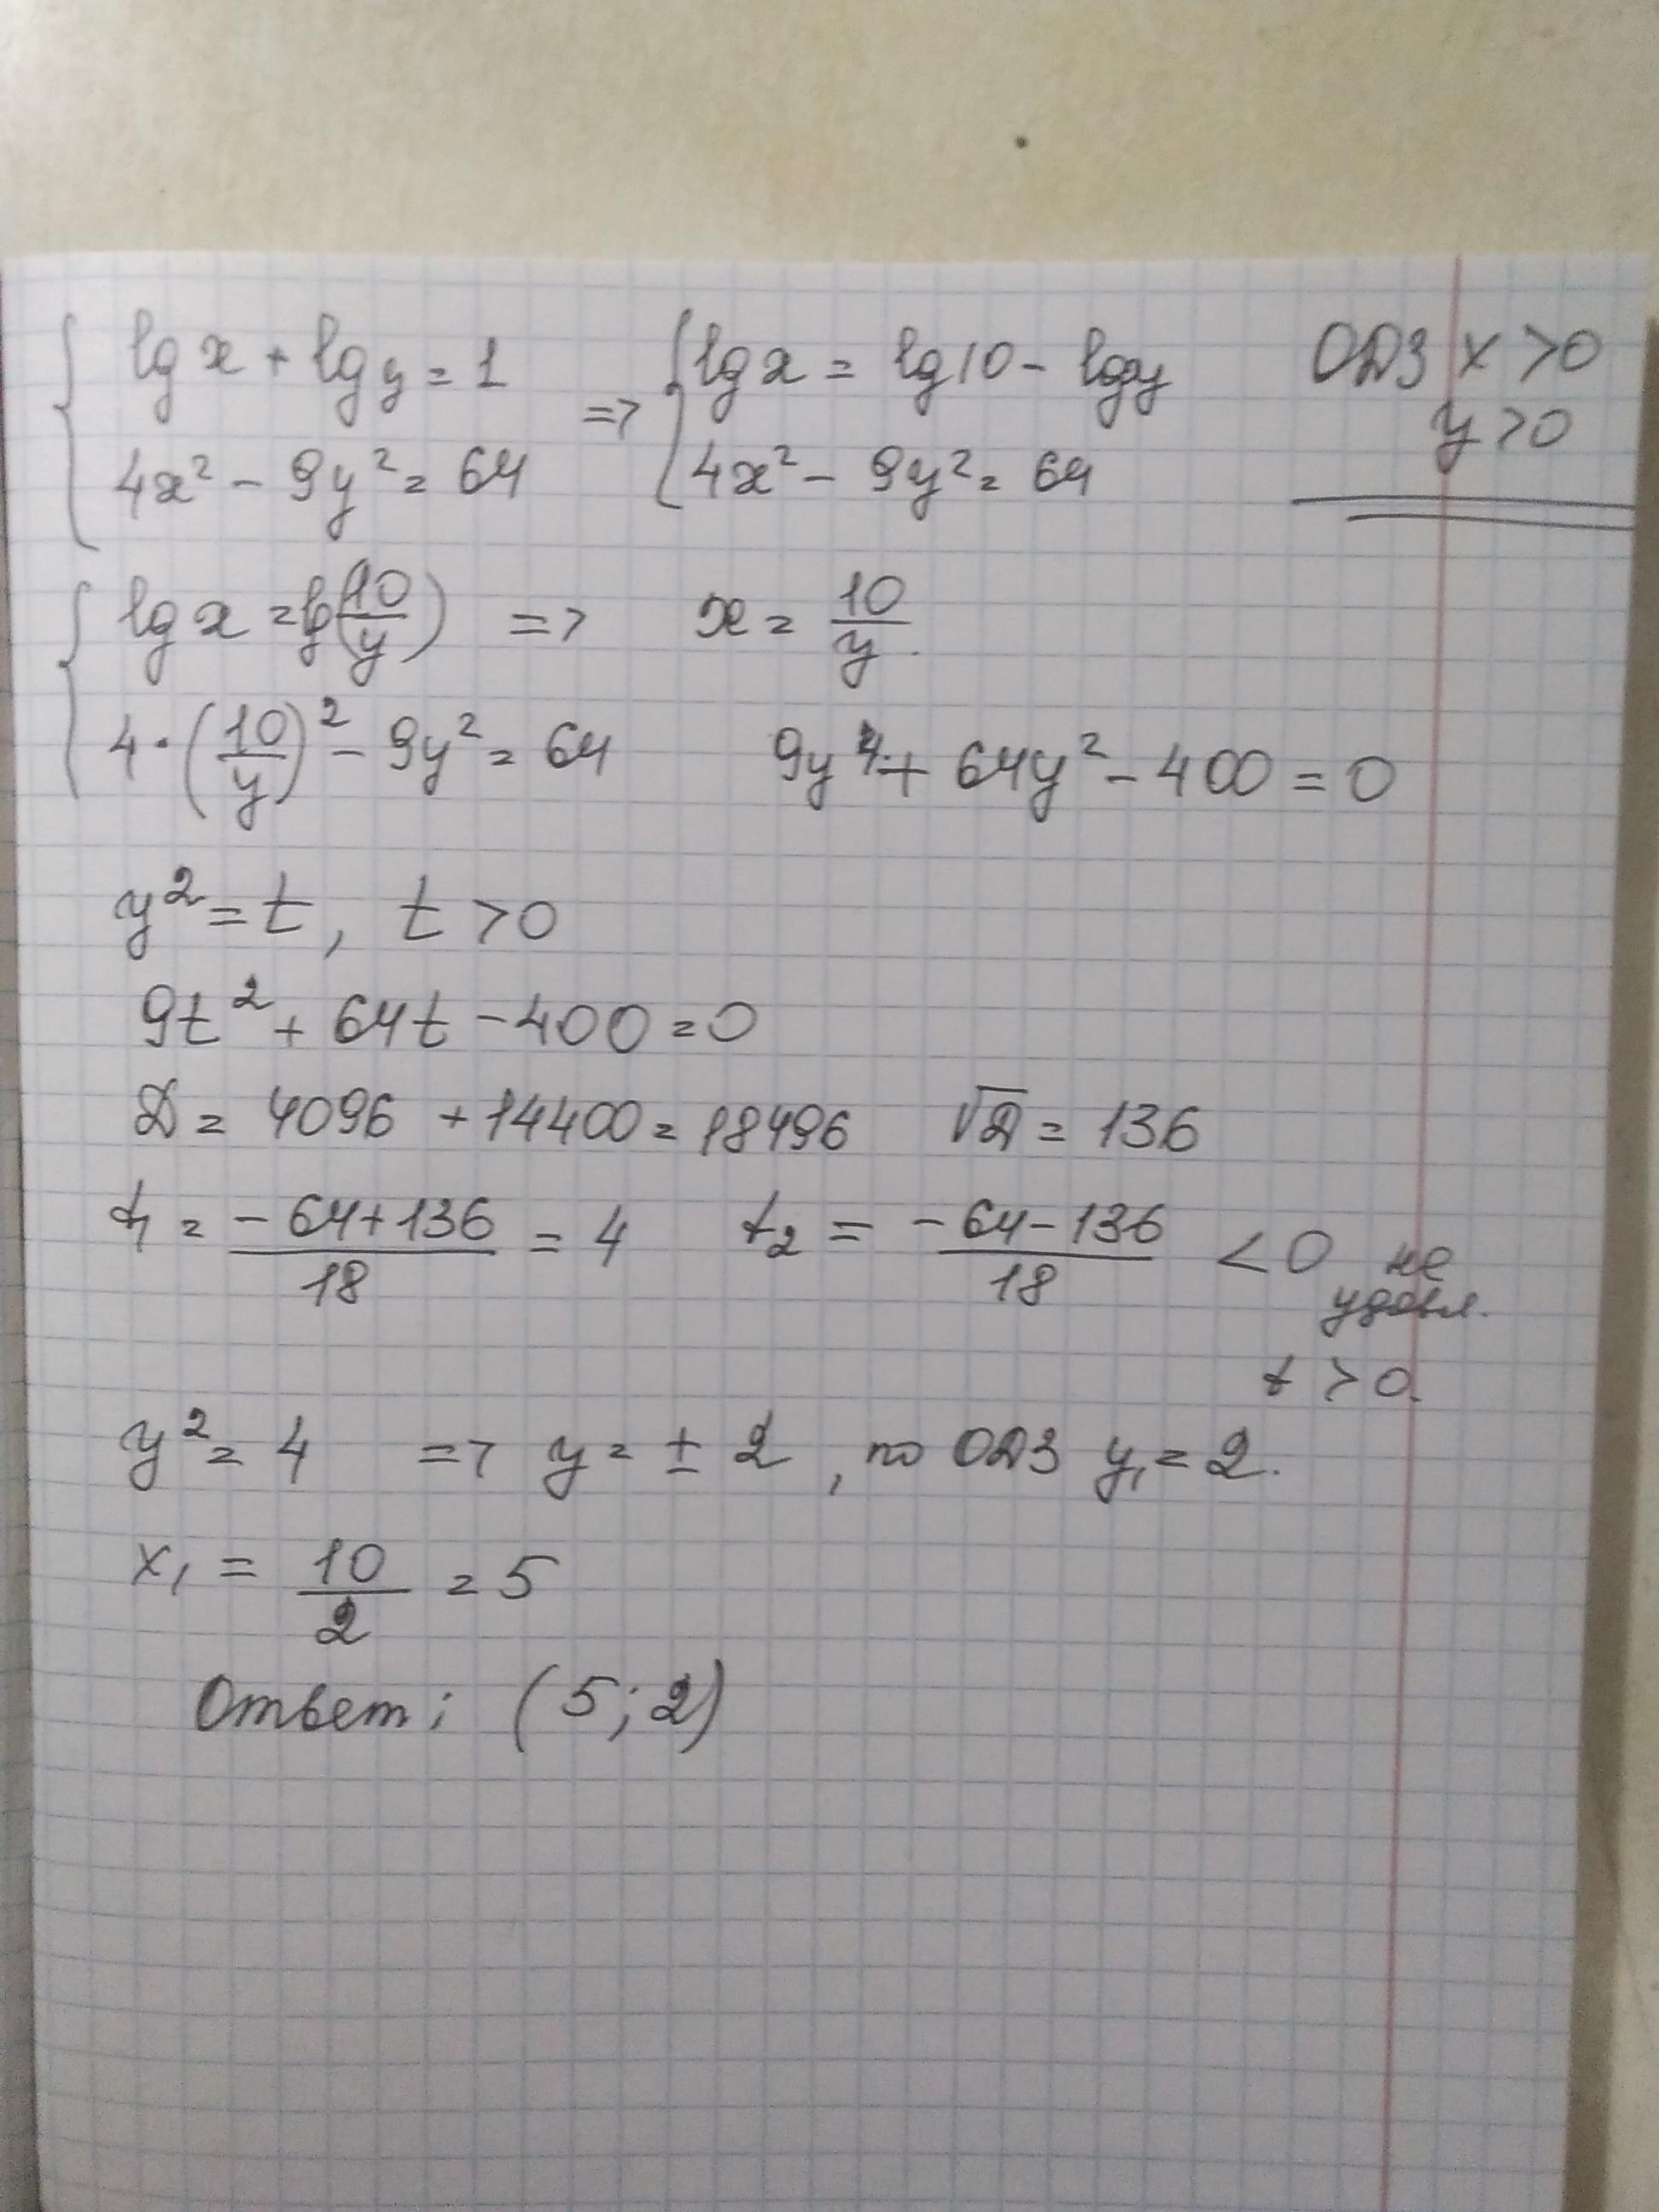 { lg x + lg y = 1 => { lg x = lg 10 - lg y ОДЗ x > 0
4x² - 9y² = 64 4x² - 9y² = 64 y > 0
{ lg x = lg(10/y) => x = 10/y
4·(10/y)² - 9y² = 64 9y⁴ + 64y² - 400 = 0
y² = t, t > 0
9t² + 64t - 400 = 0
D = 4096 + 14400 = 18496 √D = 136
t₁ = (-64+136)/18 = 4 t₂ = (-64-136)/18 < 0 не
удовл.
t > 0.
y² = 4 => y = ± 2, по ОДЗ y₁ = 2.
x₁ = 10/2 = 5
Ответ: (5; 2)